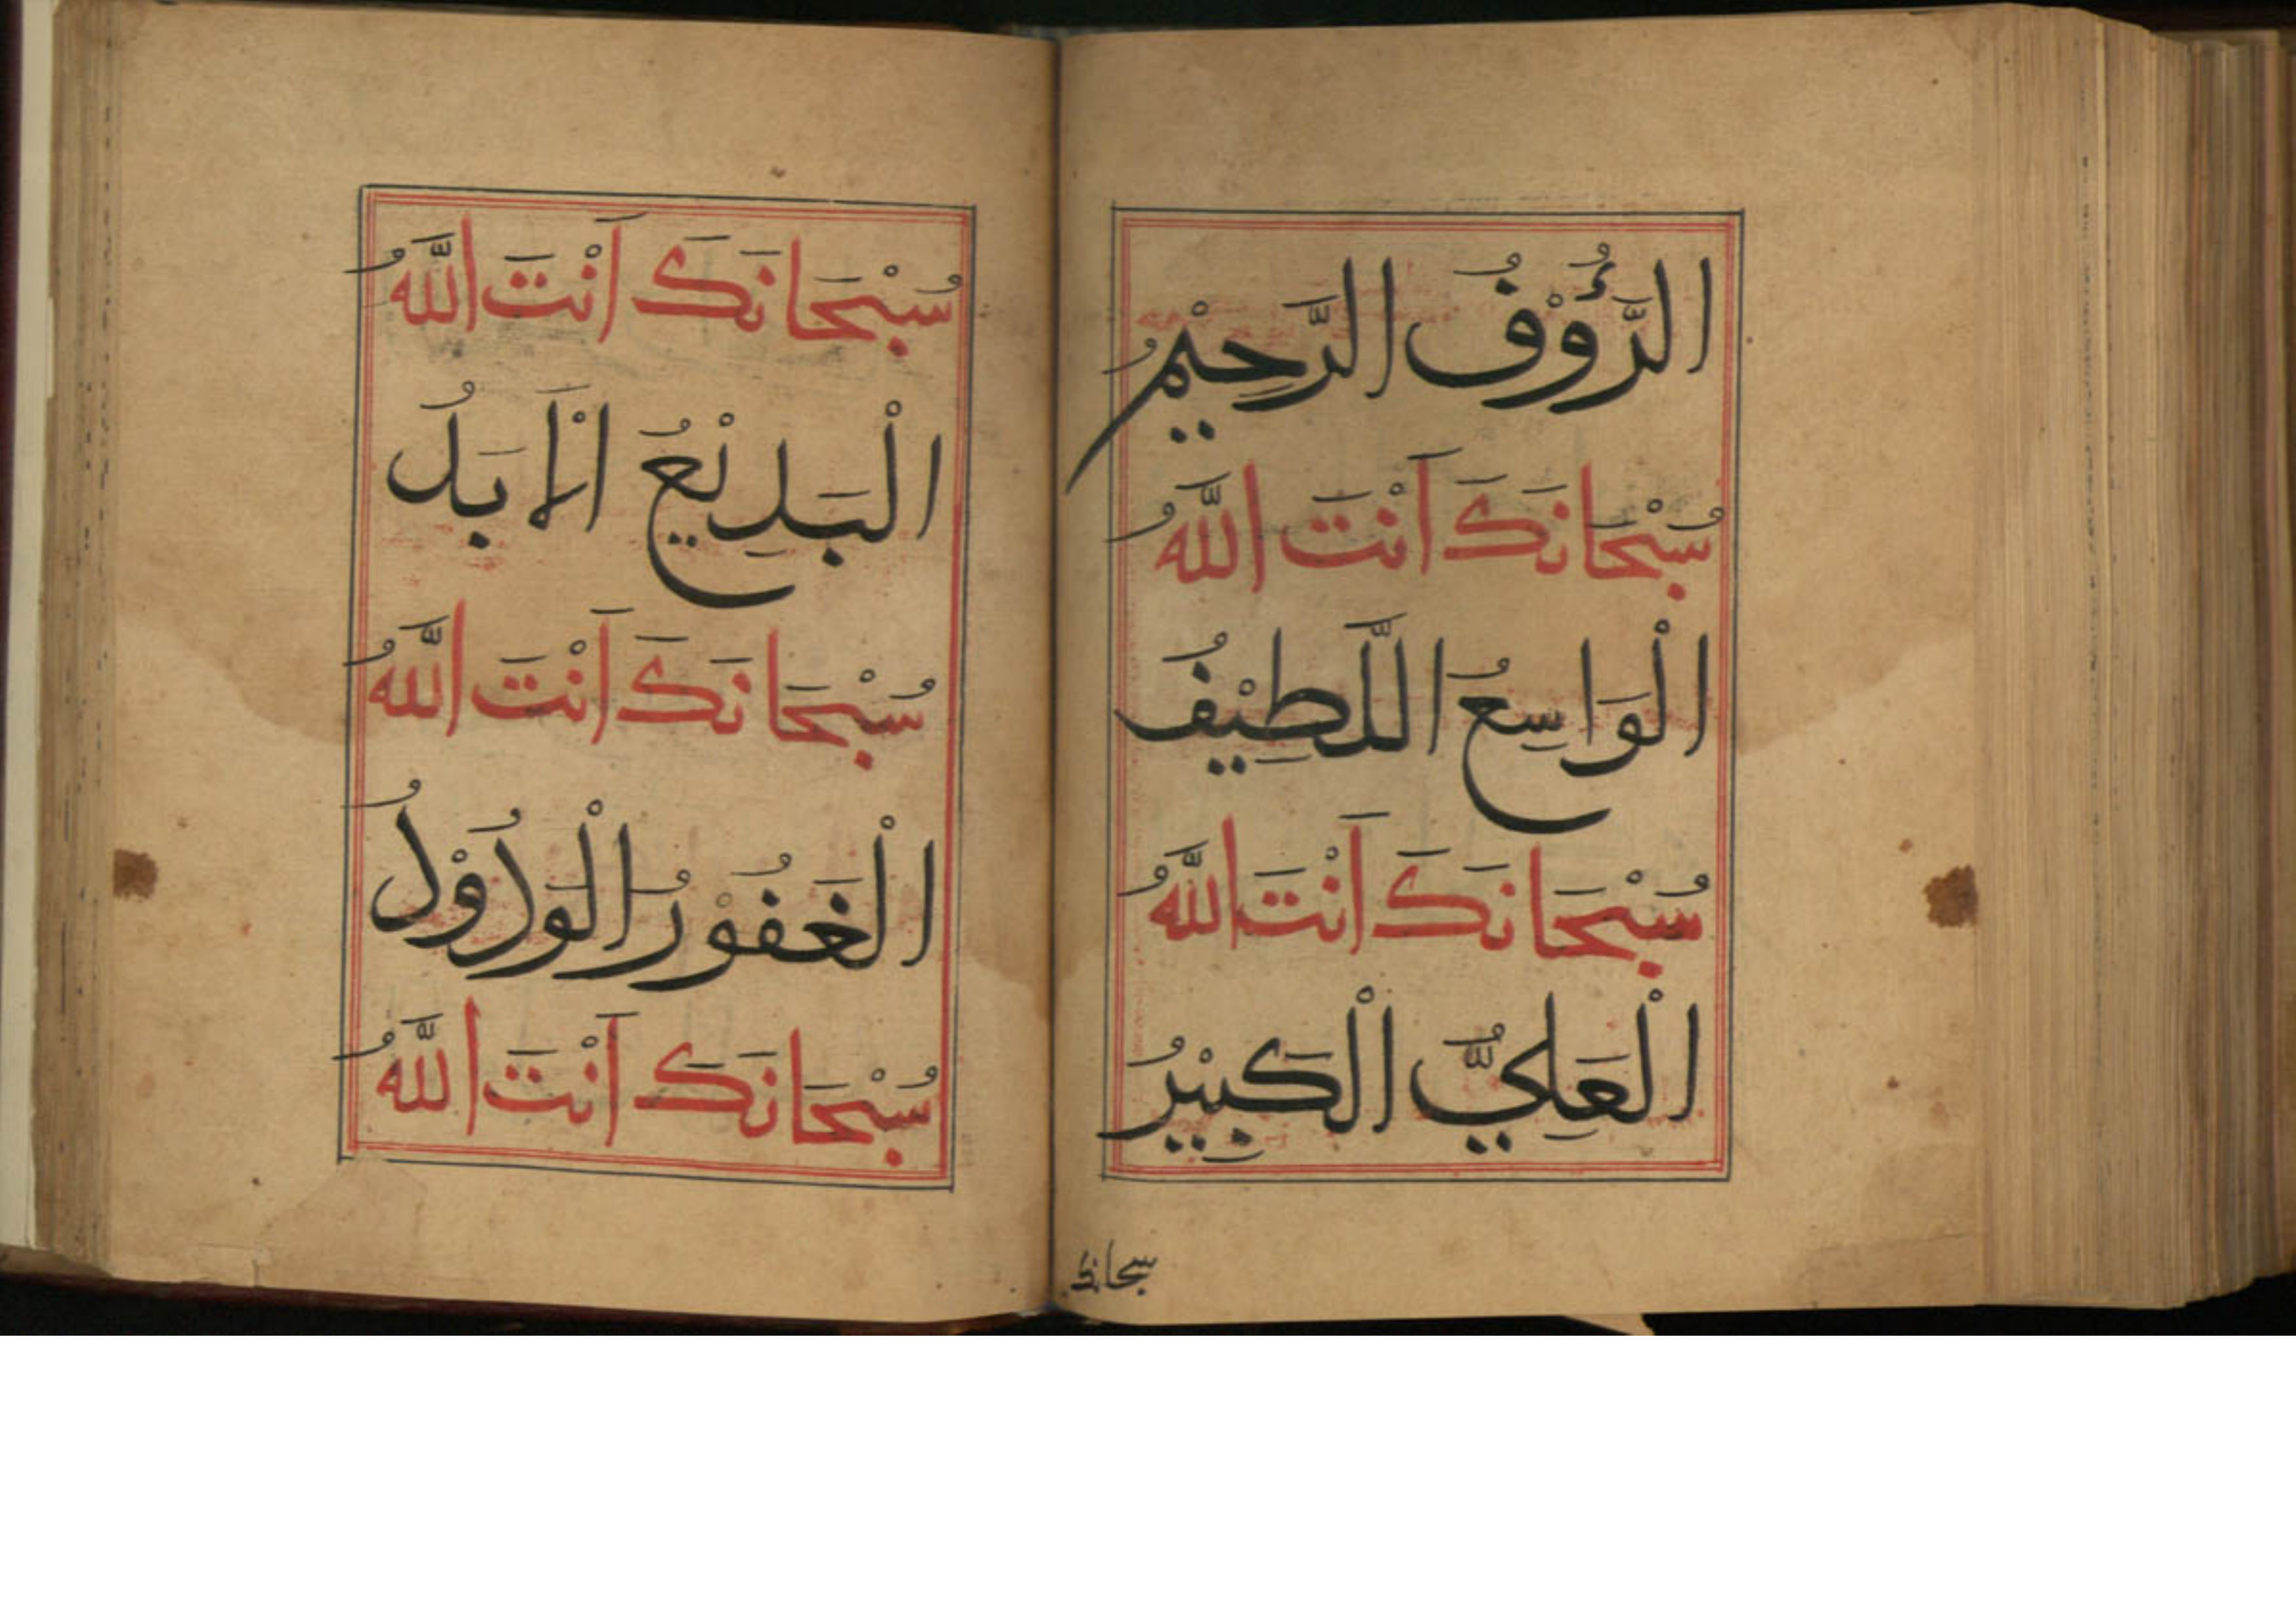 الرَّؤُوْفُ الرَّحِيْمُ
سُبْحَانَكَ اَنْتَ اللَّهُ
الْوَاسِعُ اللَّطِيْفُ
سُبْحَانَكَ اَنْتَ اللَّهُ
الْعَلِيُّ الْكَبِيْرُ
سبحانك
سُبْحَانَكَ اَنْتَ اللَّهُ
الْبَدِيْعُ الْاَبَدُ
سُبْحَانَكَ اَنْتَ اللَّهُ
الْغَفُوْرُ الْوَدُوْدُ
سُبْحَانَكَ اَنْتَ اللَّهُ